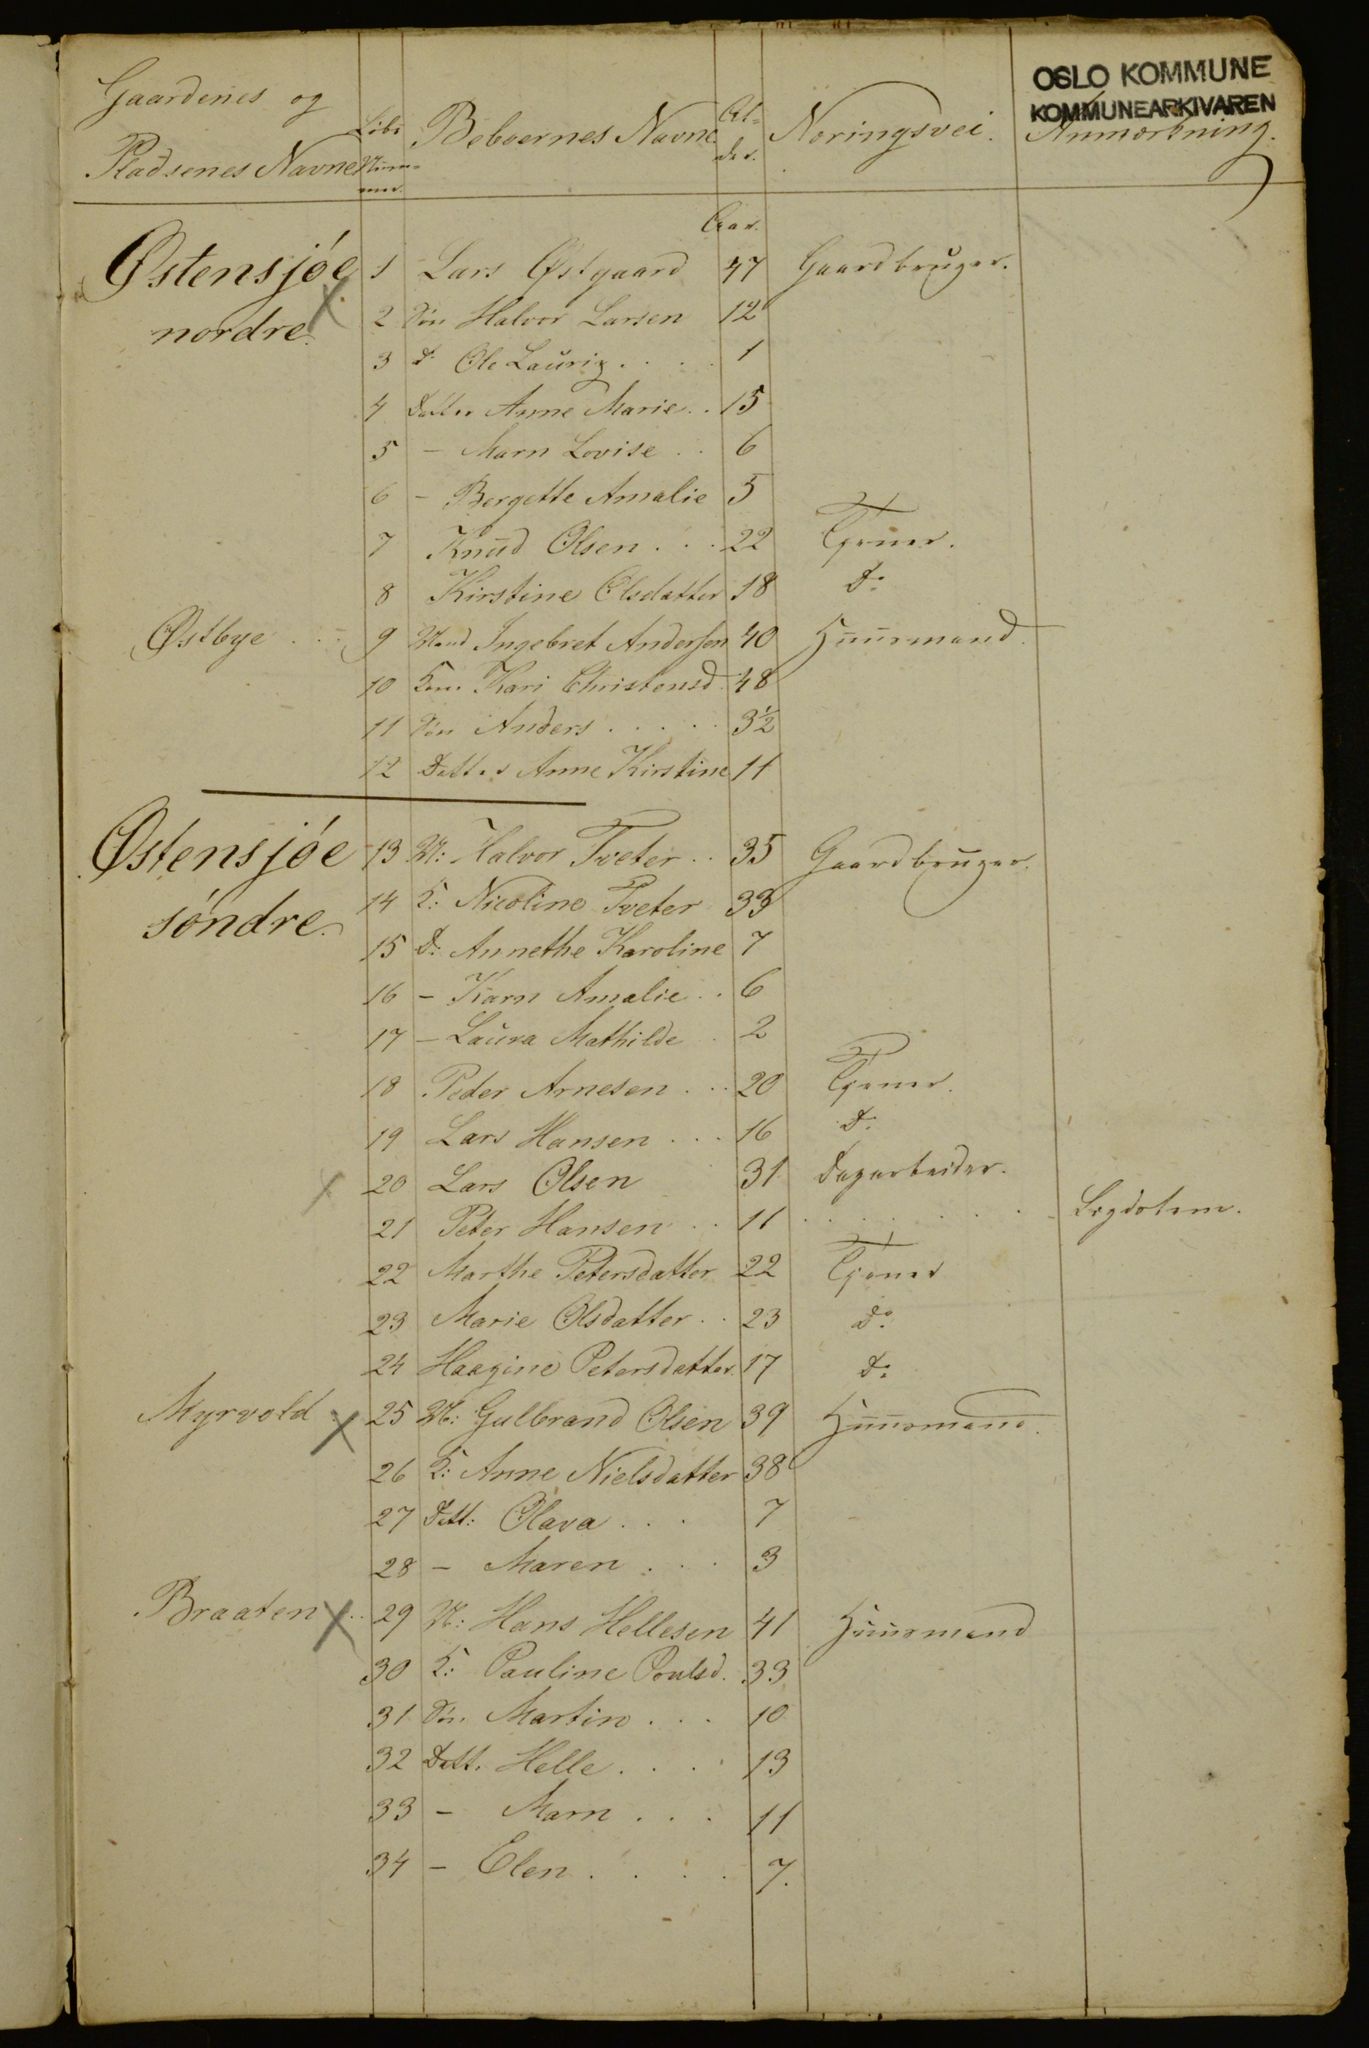 OSLO KOMMUNE
KOMMUNEARKIVAREN
Gaardenes og Pladsenes Navne | Løbe Nummer | Beboernes Navne | Alder. | Næringsvei. | Anmærkning.
Aar.
Østensjøe nordre. 1 Lars Østgaard 47 Gaardbruger.
2 Søn Halvor Larsen 12
3 Do Ole Lauriz . . . . 1
4 Datter Anne Marie . . 15
5 – Marn Lovise . . 6
6 – Bergette Amalie 5
7 Knud Olsen . . . 22 Tjener.
8 Kirstine Olsdatter 18 Do
Østbye . . . 9 Mand Ingebret Andersen 40 Huusmand.
10 Kone Kari Christensd. 48
11 Søn Anders . . . . . 3½
12 Datter Anne Kirstine 11
Østensjøe søndre. 13 M: Halvor Tveter . . 35 Gaardbruger.
14 K: Nicoline Tveter 33
15 D: Annethe Karoline 7
16 – Karn Amalie . . 6
17 – Laura Mathilde . 2
18 Peder Arnesen . . . 20 Tjener.
19 Lars Hansen . . . 16 Do
20 Lars Olsen 31 Dagarbeider.
21 Peter Hansen . . 11 . . . . . . . Lægdslem.
22 Marthe Petersdatter 22 Tjener
23 Marie Olsdatter . . 23 Do
24 Haagine Petersdatter. 17 Do
Myrvold . 25 M: Gulbrand Olsen 39 Huusmand.
26 K: Anne Nielsdatter 38
27 Datt: Olava . . . 7
28 – Maren . . . 3
Braaten . . . 29 M: Hans Hellesen 41 Huusmand
30 K: Pauline Poulsd. 33
31 Søn Martin . . . 10
32 Datt. Helle . . . . 13
33 – Marn . . . 11
34 – Elen . . . . 7.